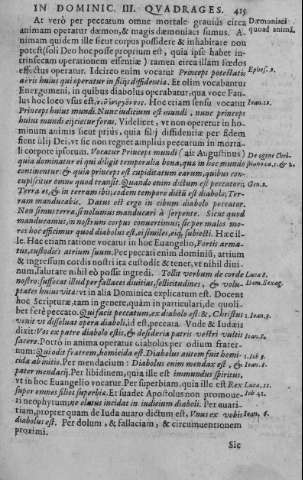 IN DOMINIC. III. QVADRAGES. 415
At verò per peccatum omne mortale grauius circa
animam operatur dæmon, & magis dæmoniaci sumus. A-
nimam quidem ille sicut corpus possidere & inhabitare non
potest (soli Deo hoc posse proprium est, quia ipse habet in-
trinsecum operationem essentiæ) tamen circa illam fœdos
effectus operatur. Idcirco enim vocatur Princeps potestatis
aeris huius qui operatur in filijs diffidentiæ. Et olim vocabantur
Energomeni, in quibus diabolus operabatur, qua voce Pau-
lus hoc loco vsus est, Hoc etiam sensu vocatur
Princeps huius mundi. Nunc iudicium est mundi, nunc princeps
huius mundi eijcietur foras. Videlicet, vt non operetur in ho-
minum animis sicut prius, quia filij diffidentiæ per fidem
fient filij Dei, vt sic non regnet amplius peccatum in morta-
li corpore ipsorum. Vocatur Princeps mundi (ait Augustinus)
quia dominatur ei qui diligit temporalia bona, quæ in hoc mundo
continentur, & quia princeps est cupiditatum earum, quibus con-
cupiscitur omne quod transit. Quando enim dictum est peccatori,
Terra es, & in terram ibis, eodem tempore dictum est diabolo, Ter-
ram manducabis. Datus est ergo in cibum diabolo peccator.
Non simus terra, si nolumus manducari à serpente. Sicut quod
manducamus, in nostrum corpus conuertimus, sic per malos mo-
res hoc efficimur quod diabolus est, ei similes, eiq́; subiecti. Hæc il-
le. Hac etiam ratione vocatur in hoc Euangelio, Fortis arma-
tus, custodiens atrium suum. Per peccati enim dominiū, atrium
& ingressum cordis nostri ita custodit & tenet, vt nihil diui-
num, salutare nihil eò possit ingredi. Tollit verbum de corde
nostro: suffocat illud per fallaces diuitias, sollicitudines, & volu-
ptates huius vitæ: vt in alia Dominica explicatum est. Docent
hoc Scripturæ, tam in genere, quàm in particulari, de quoli-
bet ferè peccato. Qui facit peccatum, ex diabolo est. &, Christus
venit vt dissoluat opera diaboli, id est, peccata. Vnde & Iudæis
dixit: Vos ex patre diabolo estis, & desideria patris vestri vultis
facere. Porrò in anima operatur diabolus per odium frater-
num: Qui odit fratrem, homicida est. Diabolus autem fuit homi-
cida ab initio. Per mendacium: Diabolus enim mendax est, &
pater mendacij. Per libidinem, quia ille est immundus spiritus,
vt in hoc Euangelio vocatur. Per superbiam, quia ille est Rex
super omnes filios superbiæ. Et suadet Apostolus non promoue-
ri neophytum, ne elatus incidat in iudicium diaboli. Per auari-
tiam, propter quam de Iuda auaro dictum est, Vnus ex vobis
diabolus est. Per dolum, & fallaciam, & circumuentionem
proximi.
Sic
Dæmoniaci
quoad animā.
Ephes. 2.
Ioan. 12.
Gen. 3.
Luca 8.
Ioan. 3.
Ioan. 8.
Ioan. 8.
Luca. 11.
Iob 41.
Ioan. 6.